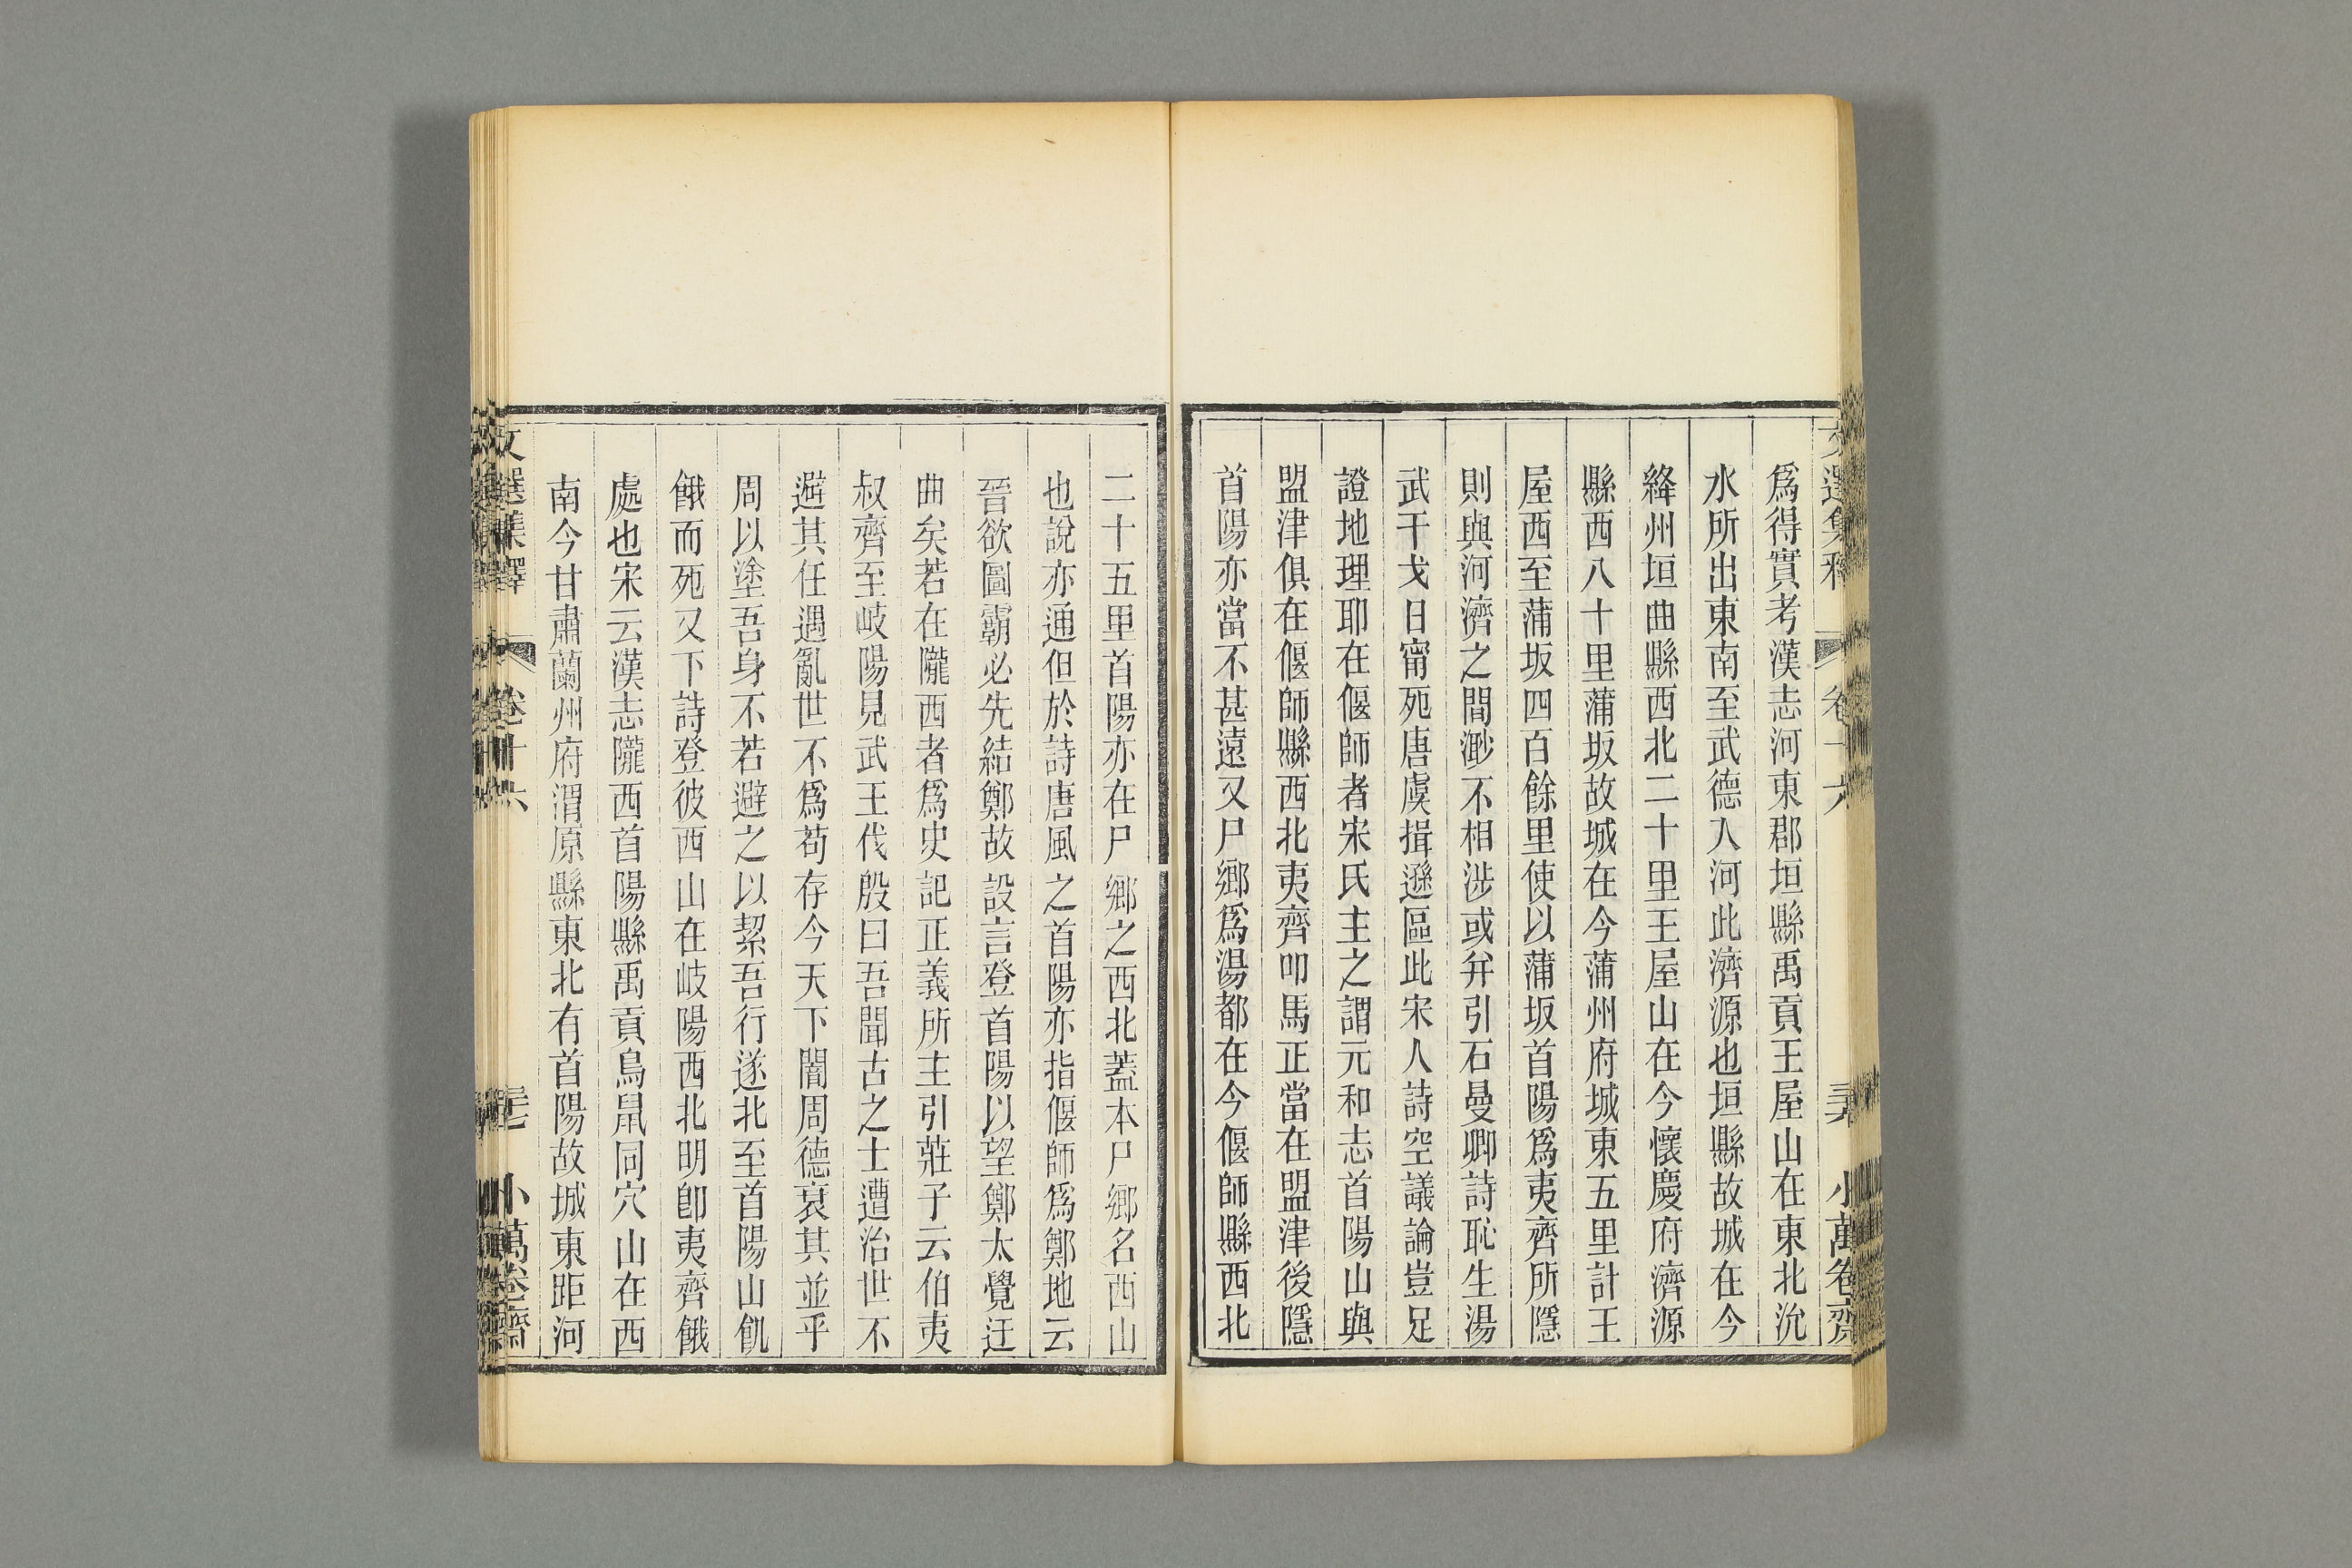 爲得實考漢志河東郡垣縣禹貢王屋山在東北沇
水所出東南至武德入河此濟源也垣縣故城在今
絳州垣曲縣西北二十里王屋山在今懷慶府濟源
縣西八十里蒲坂故城在今蒲州府城東五里計王
屋西至蒲坂四百餘里使以蒲坂首陽爲夷齊所隱
則與河濟之間渺不相涉或幷引石曼卿詩恥生湯
武干戈日甯死唐虞揖遜區此宋人詩空議論豈足
證地理耶在偃師者宋氏主之謂元和志首陽山與
盟津俱在偃師縣西北夷齊叩馬正當在盟津後隱
首陽亦當不甚遠又尸鄉爲湯都在今偃師縣西北
二十五里首陽亦在尸鄉之西北蓋本尸鄉名西山
也說亦通但於詩唐風之首陽亦指偃師爲鄭地云
晉欲圖霸必先結鄭故設言登首陽以望鄭太覺迂
曲矣若在隴西者爲史記正義所主引莊子云伯夷
叔齊至岐陽見武王伐殷曰吾聞古之士遭治世不
避其任遇亂世不爲苟存今天下闇周德衰其並乎
周以塗吾身不若避之以絜吾行遂北至首陽山飢
餓而死又下詩登彼西山在岐陽西北明卽夷齊餓
處也宋云漢志隴西首陽縣禹貢鳥鼠同穴山在西
南今甘肅蘭州府渭原縣東北有首陽故城東距河
文選集釋
卷十六
小萬卷齋